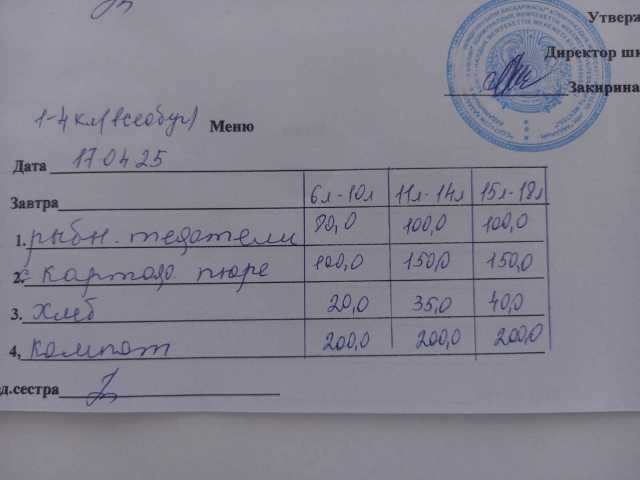 Утверж
Директор шк
Закирина
1-4 кл (всеобуч) Меню
Дата 17 04 25
Завтра 6л-10л 11л-14л 15л-18л
1. рыбн. тефтели 90,0 100,0 100,0
2. с картоф. пюре 100,0 150,0 150,0
3. хлеб 20,0 35,0 40,0
4, компот 200,0 200,0 200,0
д.сестра